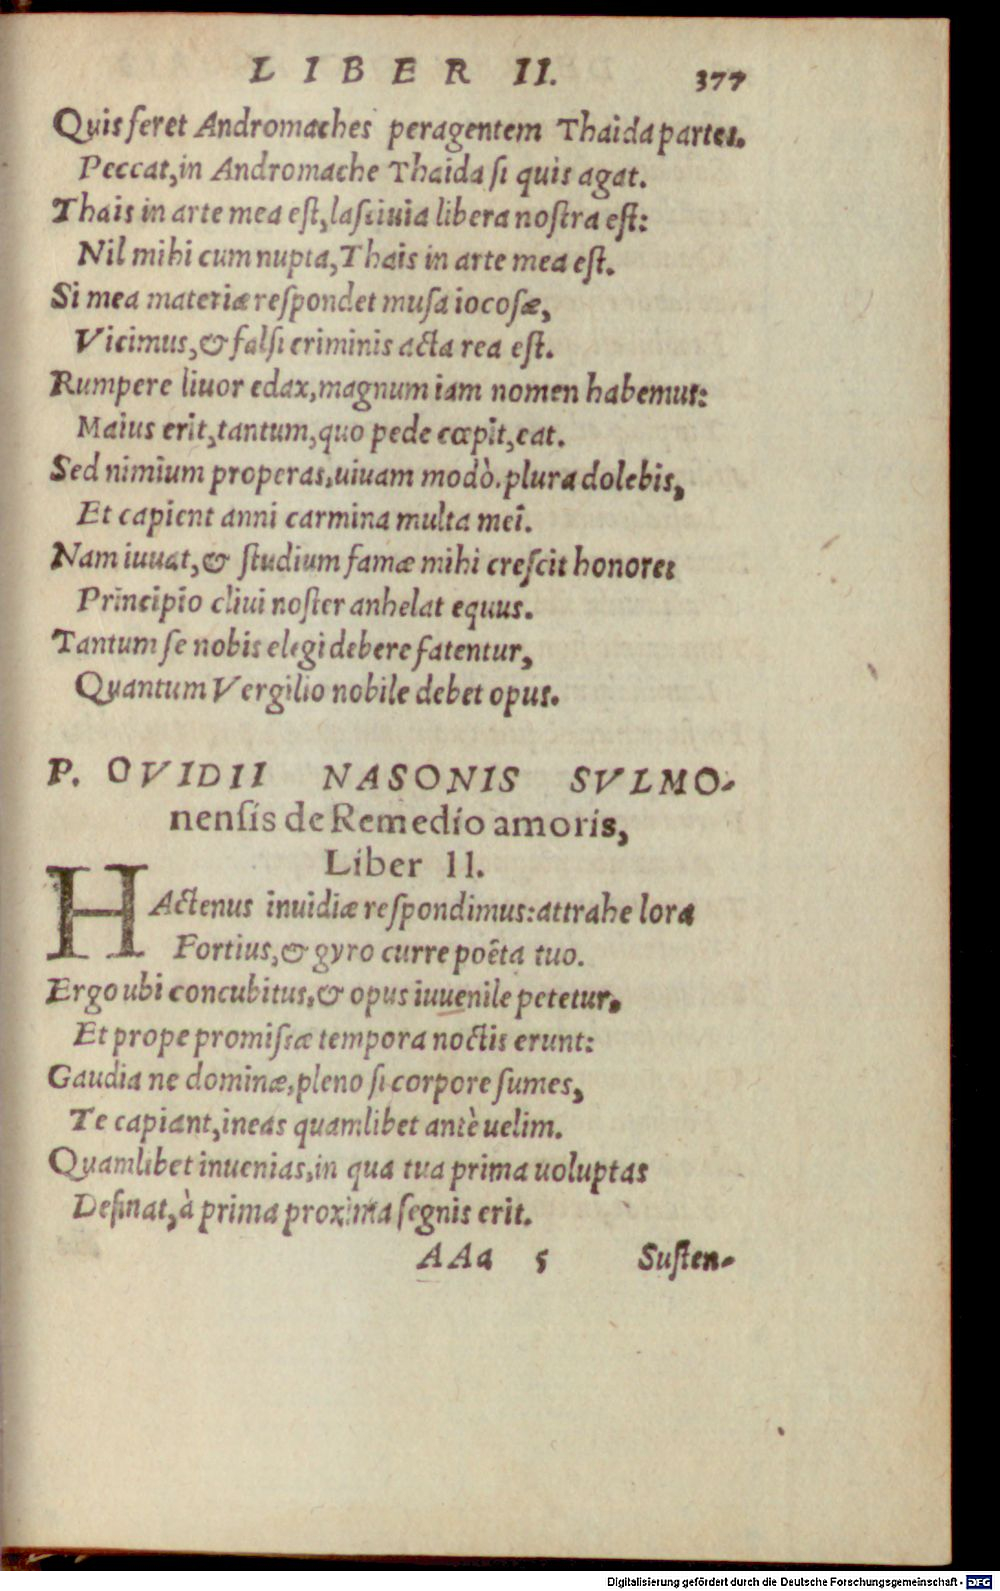 LIBER II. 377
Quis feret Andromaches peragentem Thaida partes.
Peccat, in Andromache Thaida si quis agat.
Thais in arte mea est, lasciuia libera nostra est:
Nil mihi cum nupta, Thais in arte mea est.
Si mea materiæ respondet musa iocosæ,
Vicimus, & falsi criminis acta rea est.
Rumpere liuor edax, magnum iam nomen habemus:
Maius erit, tantum, quo pede cœpit, eat.
Sed nimium properas, uiuam modò. plura dolebis,
Et capient anni carmina multa mei.
Nam iuuat, & studium famæ mihi crescit honore:
Principio cliui noster anhelat equus.
Tantum se nobis elegi debere fatentur,
Quantum Vergilio nobile debet opus.
P. OVIDII NASONIS SVLMO-
nensis de Remedio amoris,
Liber II.
HActenus inuidiæ respondimus: attrahe lora
Fortius, & gyro curre poëta tuo.
Ergo ubi concubitus, & opus iuuenile petetur,
Et prope promissæ tempora noctis erunt:
Gaudia ne dominæ, pleno si corpore sumes,
Te capiant, ineas quamlibet antè uelim.
Quamlibet inuenias, in qua tua prima uoluptas
Desinat, à prima proxima segnis erit.
AAa 5 Susten-
Digitalisierung gefördert durch die Deutsche Forschungsgemeinschaft - DFG